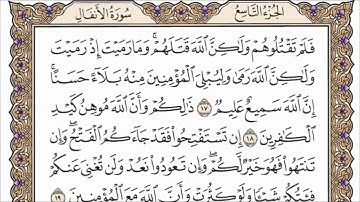 الجزء التاسع
سورة الأنفال
فَلَمْ تَقْتُلُوهُمْ وَلَٰكِنَّ ٱللَّهَ قَتَلَهُمْ ۚ وَمَا رَمَيْتَ إِذْ رَمَيْتَ
وَلَٰكِنَّ ٱللَّهَ رَمَىٰ ۚ وَلِيُبْلِىَ ٱلْمُؤْمِنِينَ مِنْهُ بَلَآءً حَسَنًا ۚ
إِنَّ ٱللَّهَ سَمِيعٌ عَلِيمٌ ١٧ ذَٰلِكُمْ وَأَنَّ ٱللَّهَ مُوهِنُ كَيْدِ
ٱلْكَٰفِرِينَ ١٨ إِن تَسْتَفْتِحُوا۟ فَقَدْ جَآءَكُمُ ٱلْفَتْحُ ۖ وَإِن
تَنتَهُوا۟ فَهُوَ خَيْرٌ لَّكُمْ ۖ وَإِن تَعُودُوا۟ نَعُدْ وَلَن تُغْنِىَ عَنكُمْ
فِئَتُكُمْ شَيْـًٔا وَلَوْ كَثُرَتْ وَأَنَّ ٱللَّهَ مَعَ ٱلْمُؤْمِنِينَ ١٩